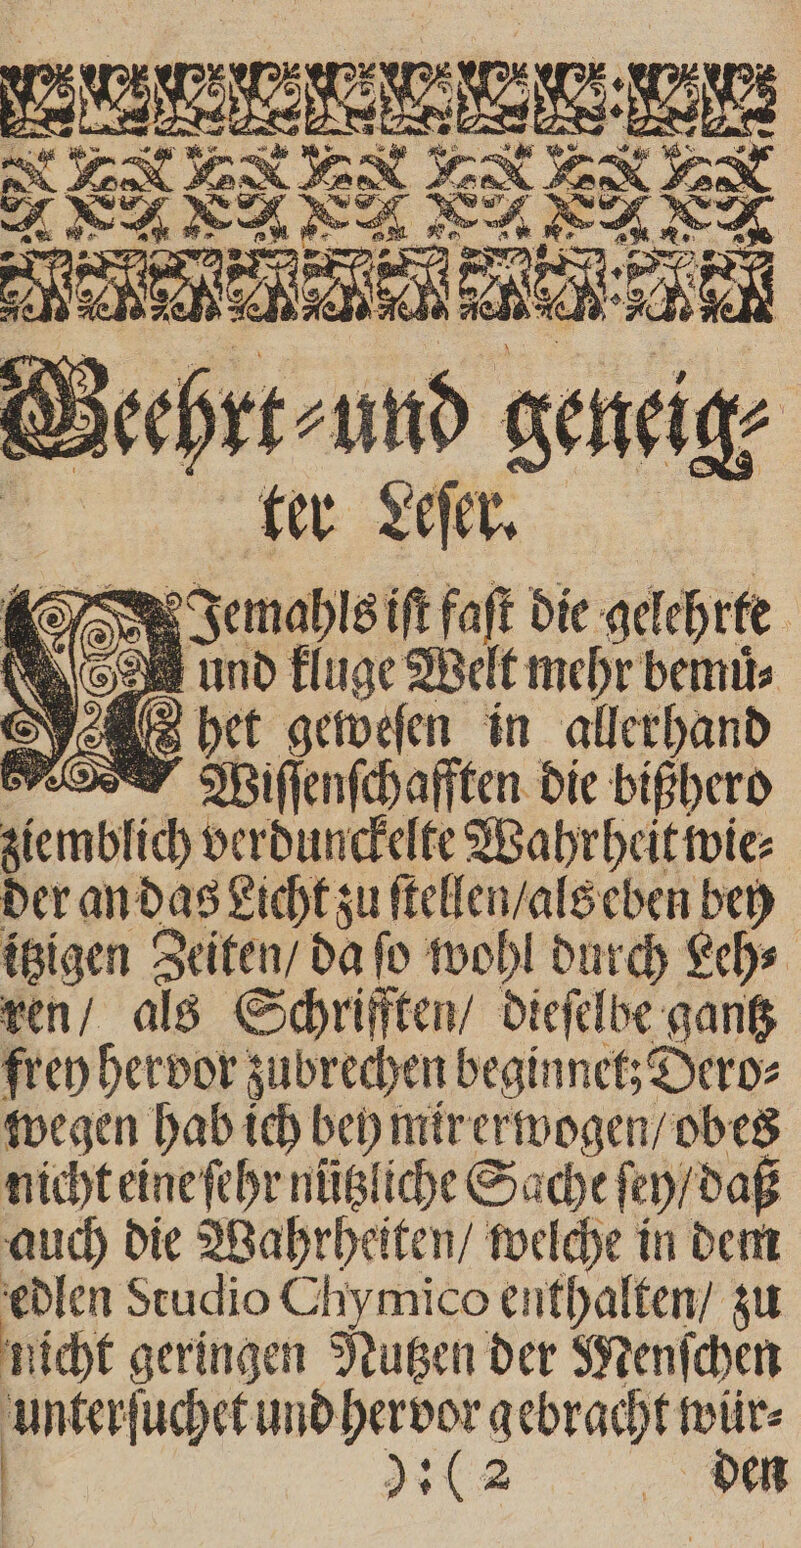 Geehrt⸗und geneig⸗
ter Leſer.
NJemahls iſt faſt die gelehrte
und kluge Welt mehr bemuͤ⸗
het geweſen in allerhand
Wiſſenſchafften die bißhero
ziemblich verdunckelte Wahrheit wie⸗
der an das Licht zu ſtellen/als eben bey
itzigen Zeiten/ da ſo wohl durch Leh⸗
ren/ als Schrifften/ dieſelbe gantz
frey hervor zubrechen beginnet; Dero⸗
wegen hab ich bey mir erwogen/ ob es
nicht eine ſehr nützliche Sache ſey/ daß
auch die Wahrheiten/ welche in dem
edlen Studio Chymico enthalten/ zu
nicht geringen Nutzen der Menſchen
unterſuchet und hervor gebracht wür⸗
):( 2 den